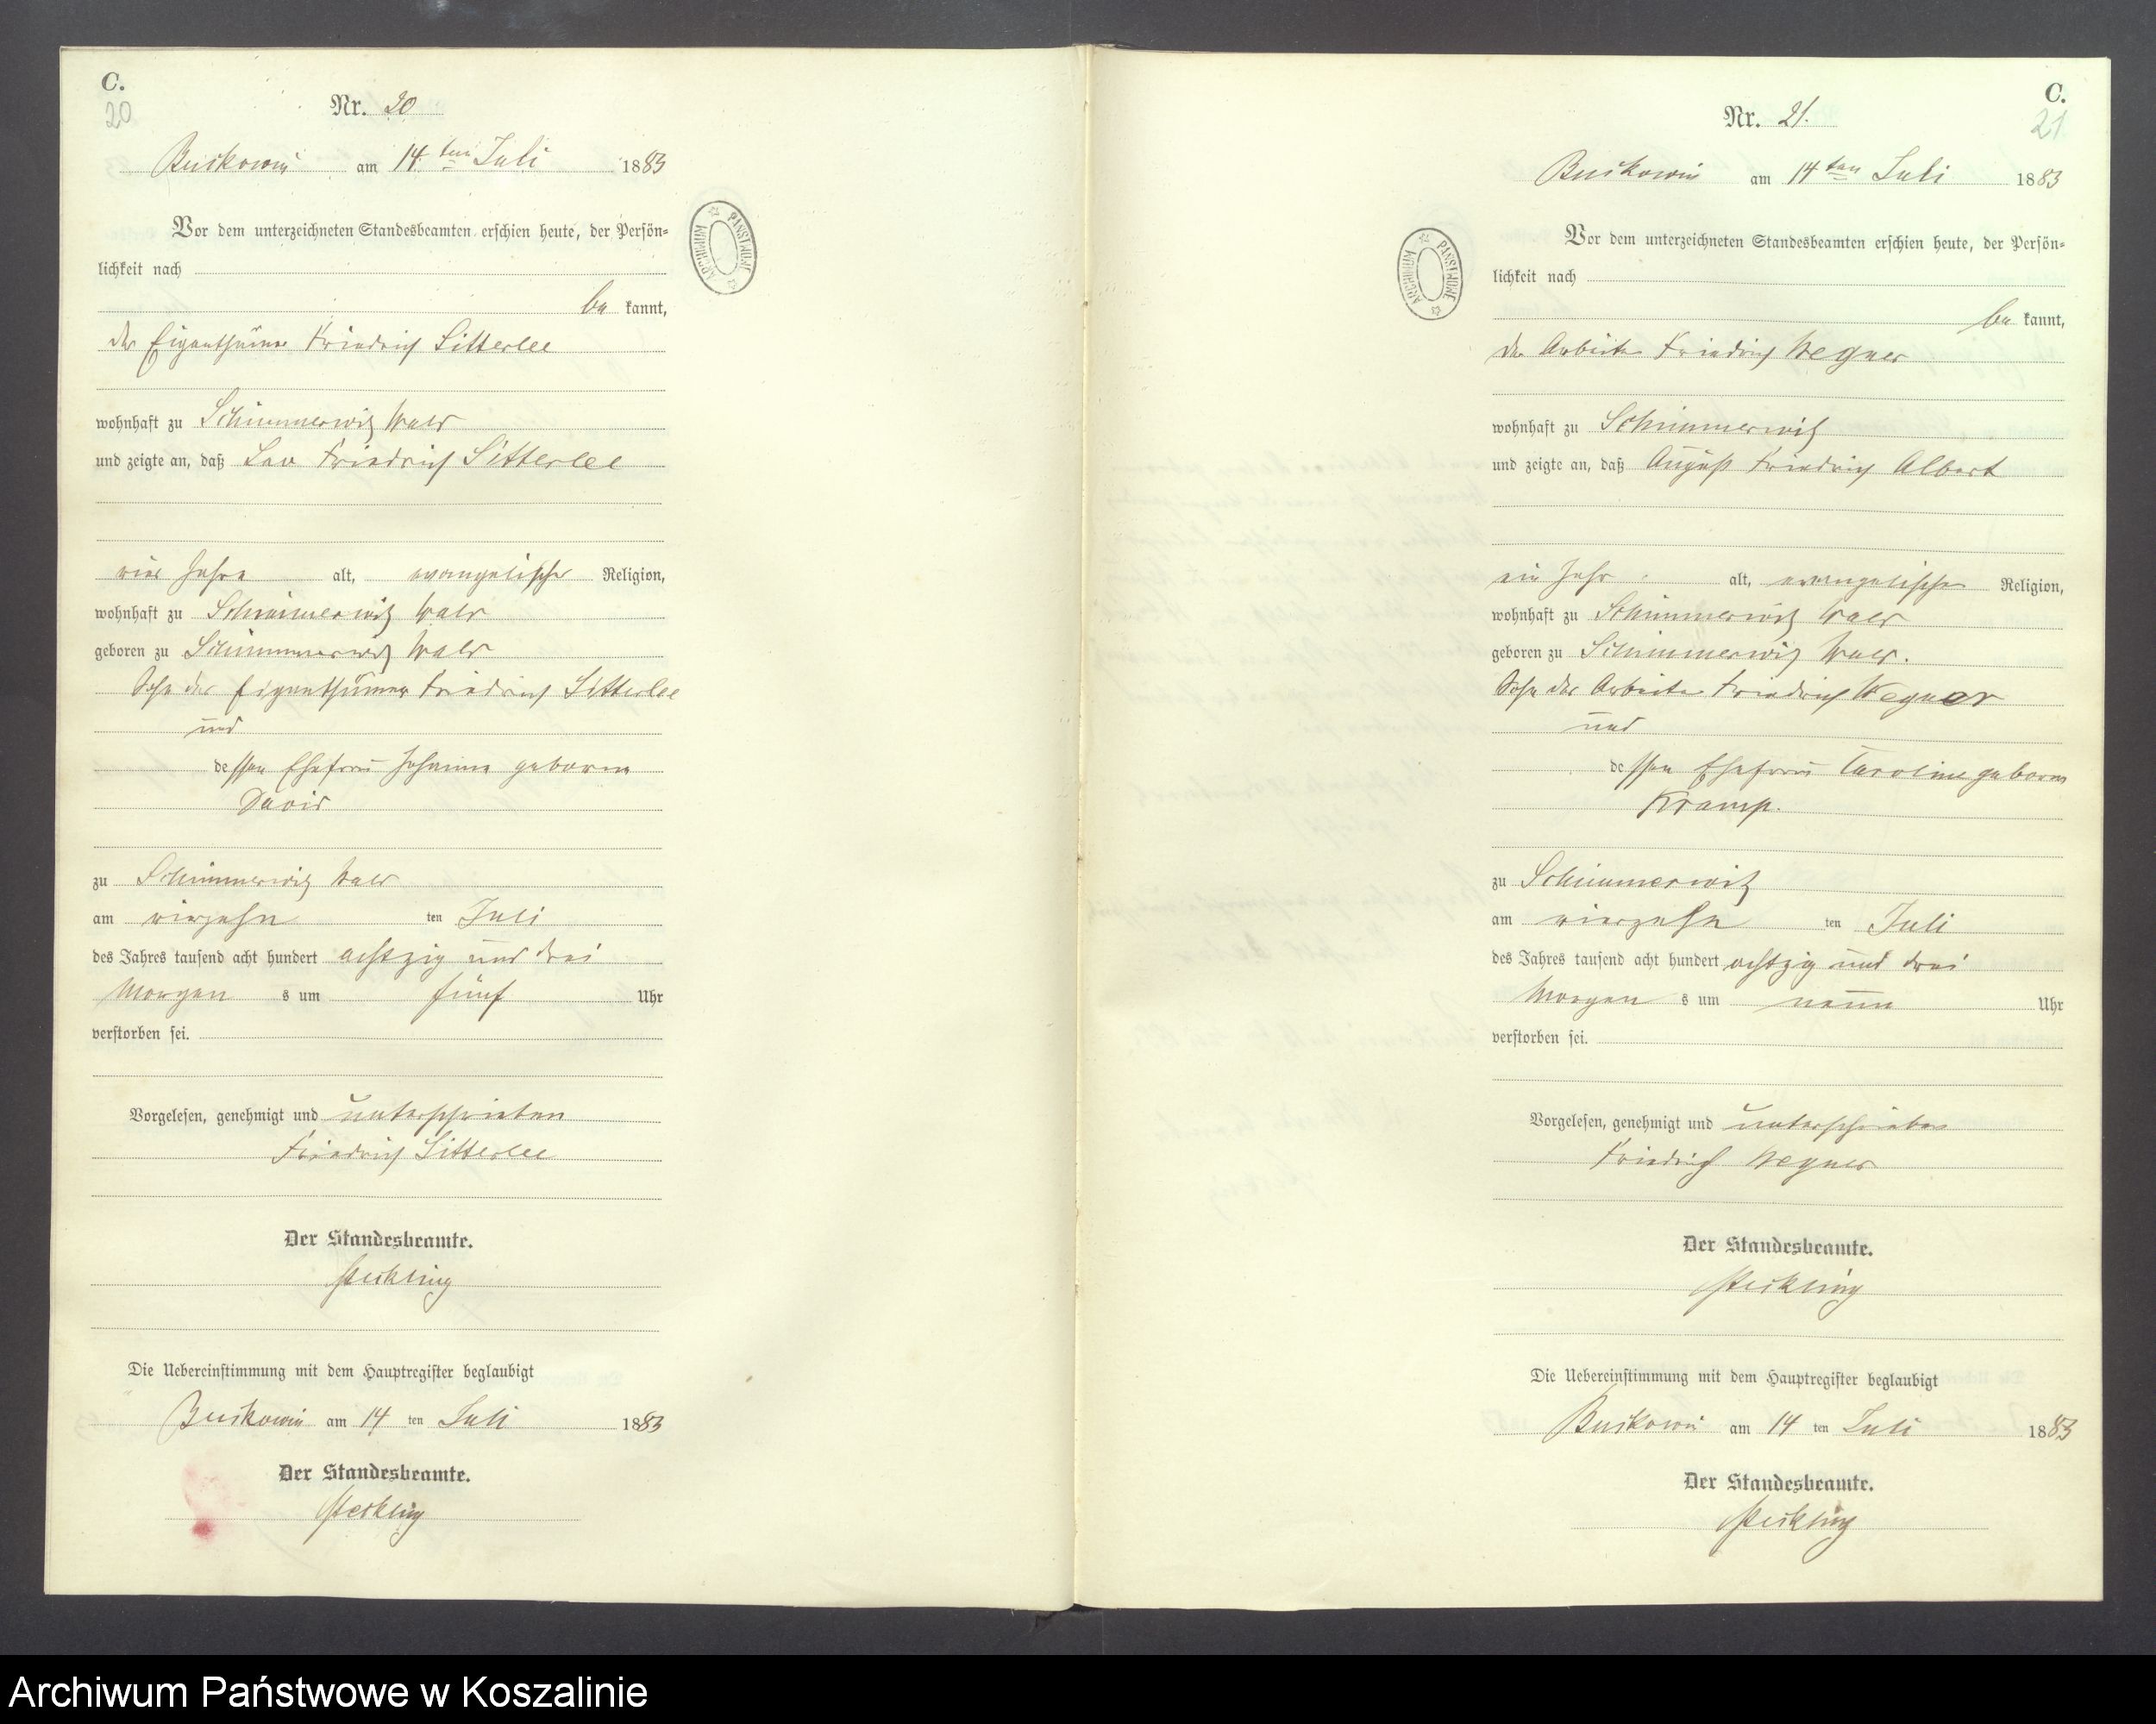 C.
20
Nr. 20
Buckowin am 14 ten Juli 1883
Vor dem unterzeichneten Standesbeamten erschien heute, der Persön-
lichkeit nach
be kannt,
der Eigenthümer Friedrich Litterlee
wohnhaft zu Schimmerwitz Wald
und zeigte an, daß Friedrich Litterlee
vier Jahre alt, evangelischer Religion,
wohnhaft zu Schimmerwitz Wald
geboren zu Schimmerwitz Wald
Sohn des Eigenthümer Friedrich Litterlee
und
dessen Ehefrau Johanna geborne
David
zu Schimmerwitz Wald
am vierzehn ten Juli
des Jahres tausend acht hundert achtzig und drei
Morgen s um fünf Uhr
verstorben sei.
Vorgelesen, genehmigt und unterschrieben
Friedrich Litterlee
Der Standesbeamte.
Die Uebereinstimmung mit dem Hauptregister beglaubigt
Buckowin am 14 ten Juli 1883
Der Standesbeamte.
ARCHIWUM PAŃSTWOWE
C.
21
Nr. 21.
Buckowin am 14 ten Juli 1883
Vor dem unterzeichneten Standesbeamten erschien heute, der Persön-
lichkeit nach
be kannt,
der Arbeiter Friedrich Wegner
wohnhaft zu Schimmerwitz
und zeigte an, daß August Friedrich Albert
ein Jahr alt, evangelischer Religion,
wohnhaft zu Schimmerwitz Wald
geboren zu Schimmerwitz Wald.
Sohn des Arbeiter Friedrich Wegner
und
dessen Ehefrau Caroline geborne
Kramp.
zu Schimmerwitz
am vierzehn ten Juli
des Jahres tausend acht hundert achtzig und drei
Morgen s um neun Uhr
verstorben sei.
Vorgelesen, genehmigt und unterschrieben
Friedrich Wegner
Der Standesbeamte.
Die Uebereinstimmung mit dem Hauptregister beglaubigt
Buckowin am 14 ten Juli 1883
Der Standesbeamte.
ARCHIWUM PAŃSTWOWE
Archiwum Państwowe w Koszalinie